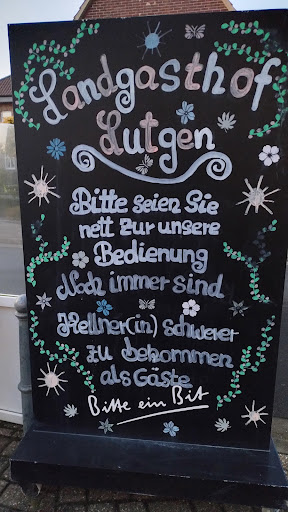 Landgasthof
Lutgen
Bitte seien Sie
nett zur unsere
Bedienung
Noch immer sind
Kellner(in) schwerer
zu bekommen
als Gäste
Bitte ein Bit